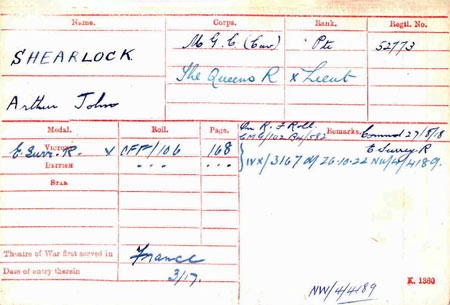 Name. Corps. Rank. Regtl. No.
SHEARLOCK
M G C (Cav) Pte 52773
The Queens R x Lieut
Arthur John
Medal. Roll. Page. Remarks.
On R. F Roll. Commd 27/8/18
VICTORY
E. Surr. R. x OFF/106 168
E Surrey. R
BRITISH " " " " " "
IVX/3167 26.10.22 NW/4/4189.
STAR
Theatre of War first served in France
Date of entry therein 3/17.
K. 1380
NW/4/4189